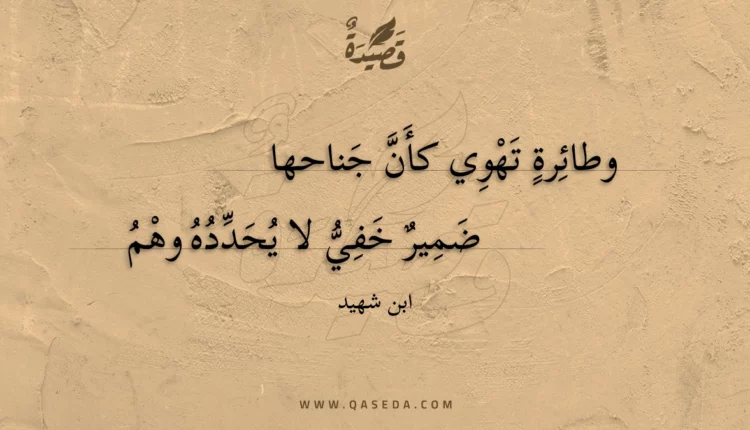 قَصِيدَةٌ
وطائِرةٍ تَهْوِي كأَنَّ جَناحها
ضَمِيرٌ خَفِيُّ لا يُحَدِّدُهُ وهْمُ
ابن شهيد
WWW.QASEDA.COM